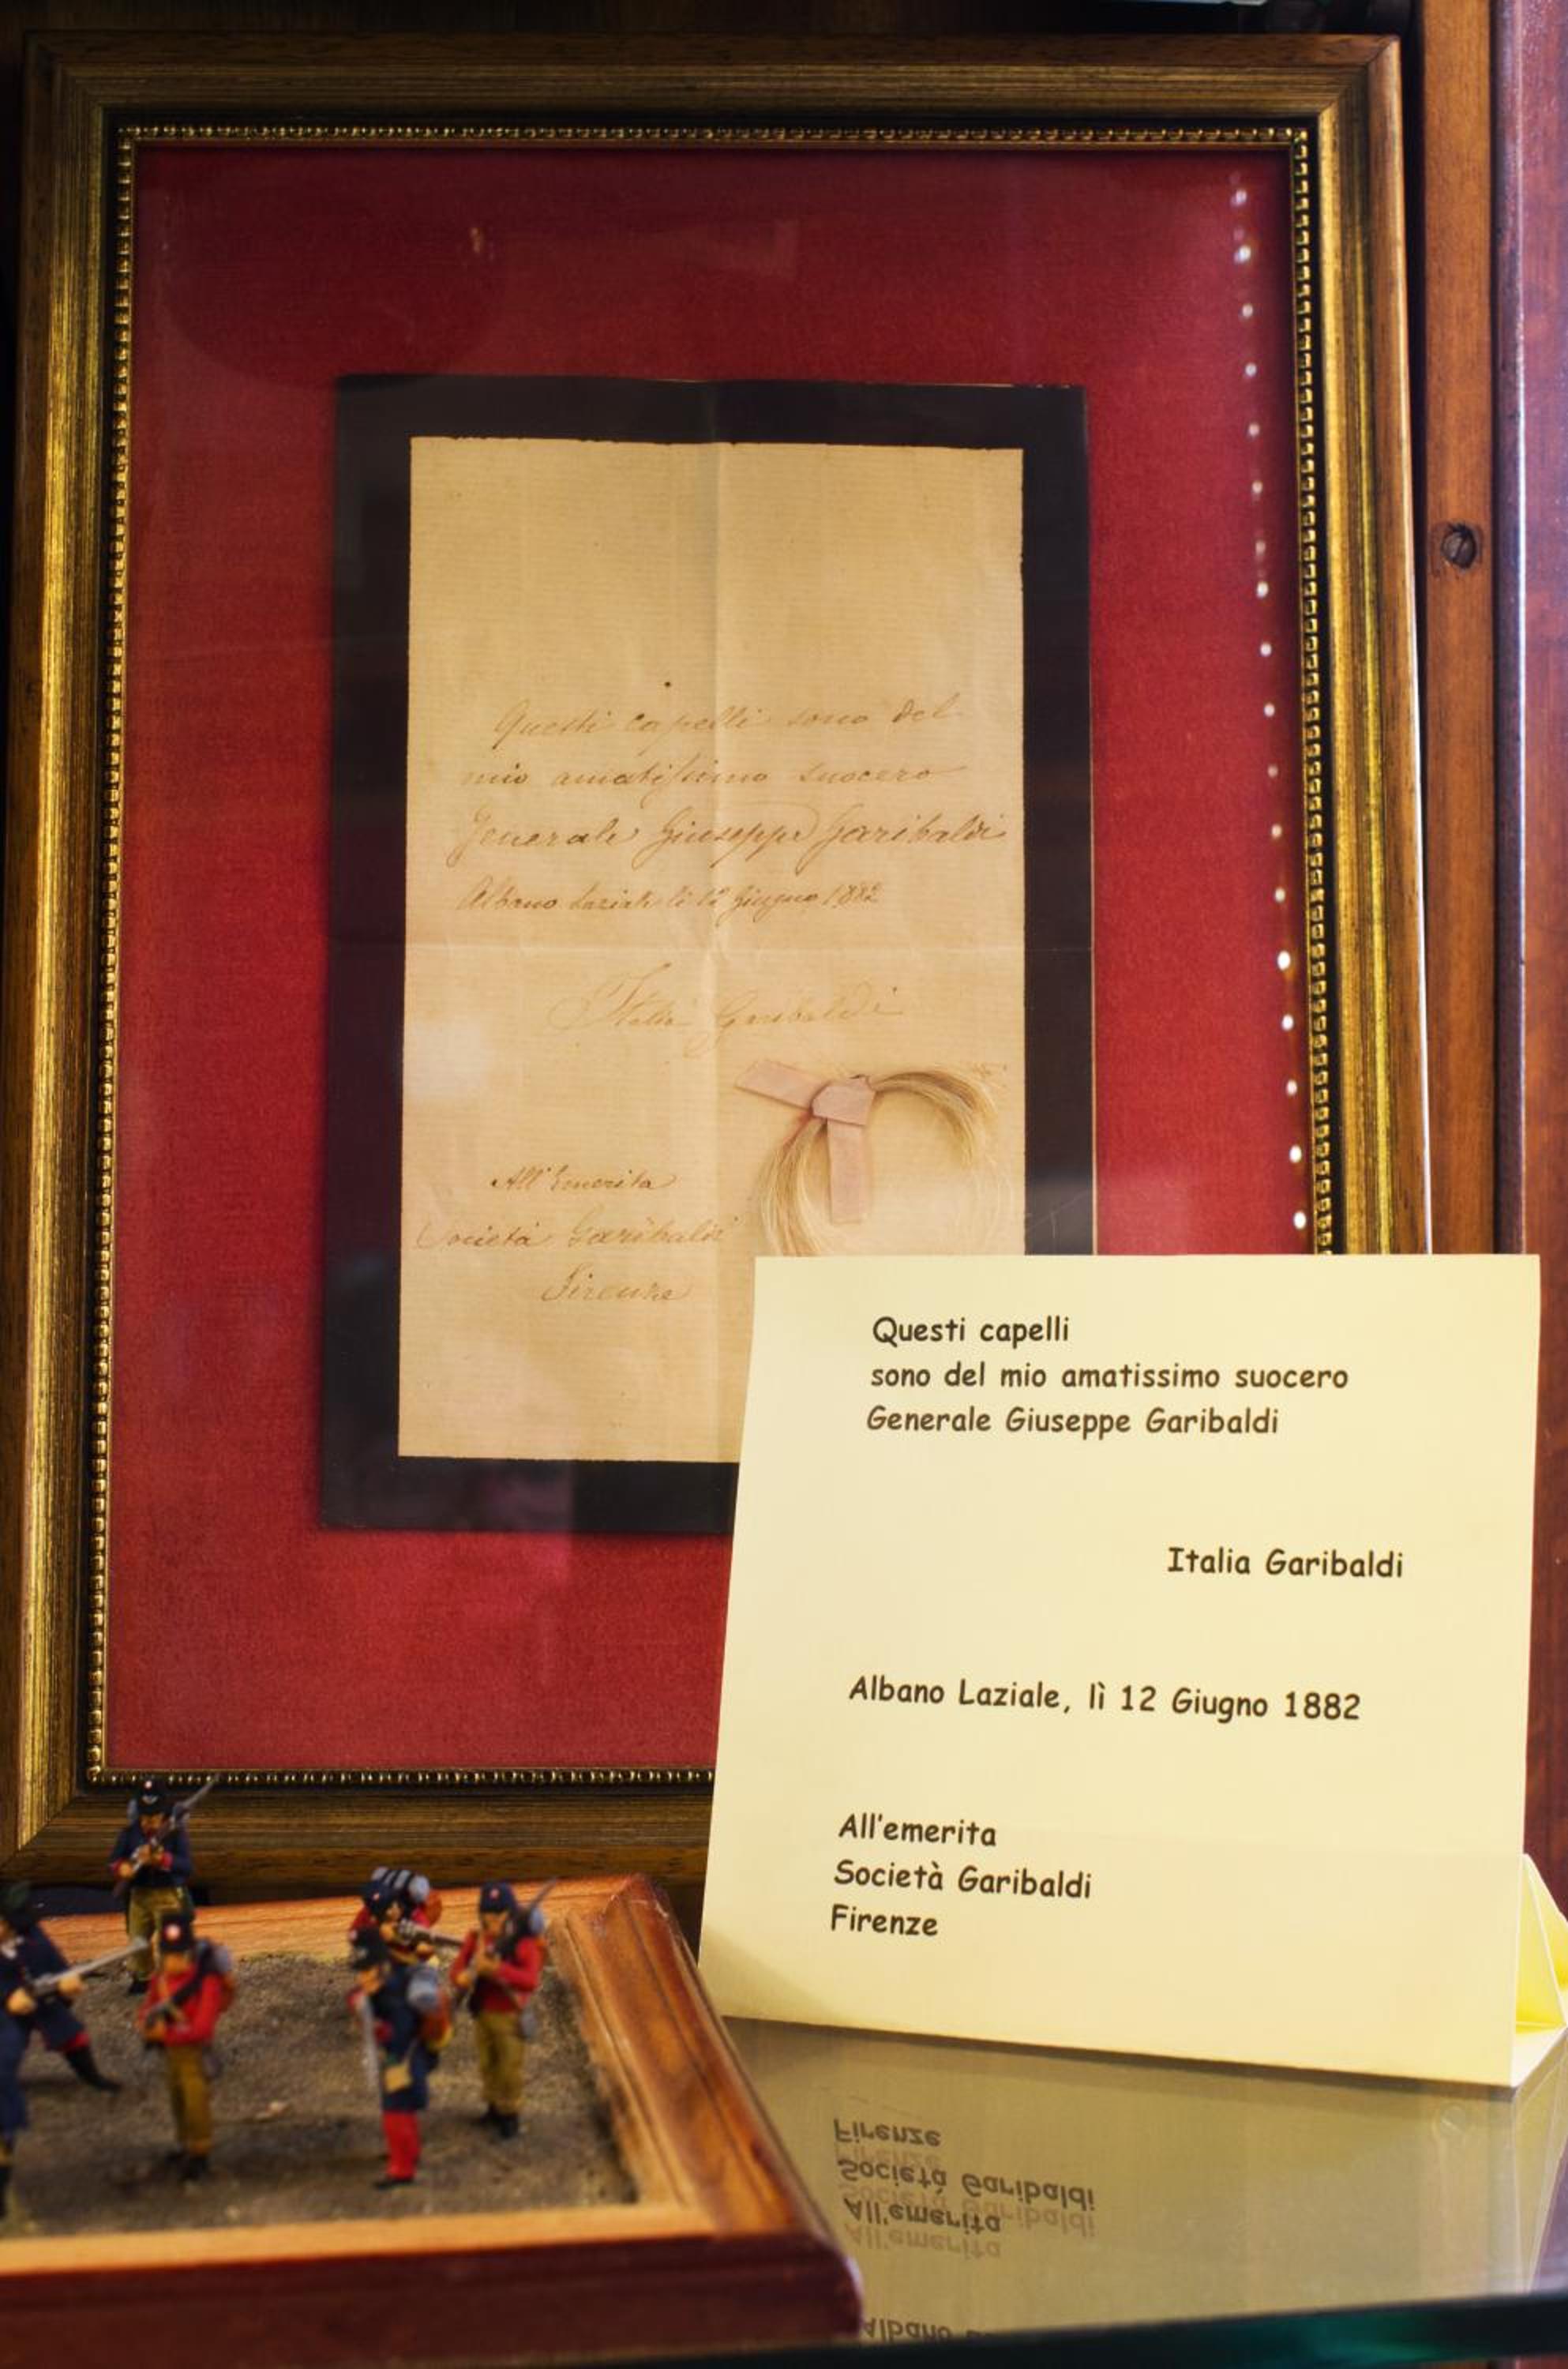 Questi capelli sono del
mio amatissimo suocero
Generale Giuseppe Garibaldi
Albano Laziale lì 12 Giugno 1882
Italia Garibaldi
All'Emerita
Società Garibaldi
Firenze
Questi capelli
sono del mio amatissimo suocero
Generale Giuseppe Garibaldi
Italia Garibaldi
Albano Laziale, lì 12 Giugno 1882
All'emerita
Società Garibaldi
Firenze
Firenze
Società Garibaldi
All'emerita
Albano